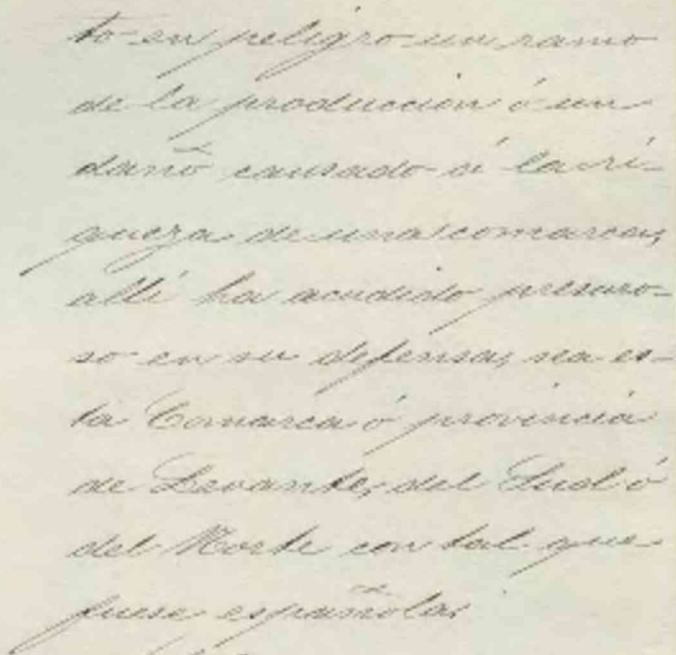 to en peligro un ramo
de la produccion ó un
daño causado á la ri-
queza de una comarca,
alli ha acudido presuro-
so en su defensa, sea es-
ta Comarca ó provincia
de Levante, del Sud ó
del Norte con tal que
fuese española.